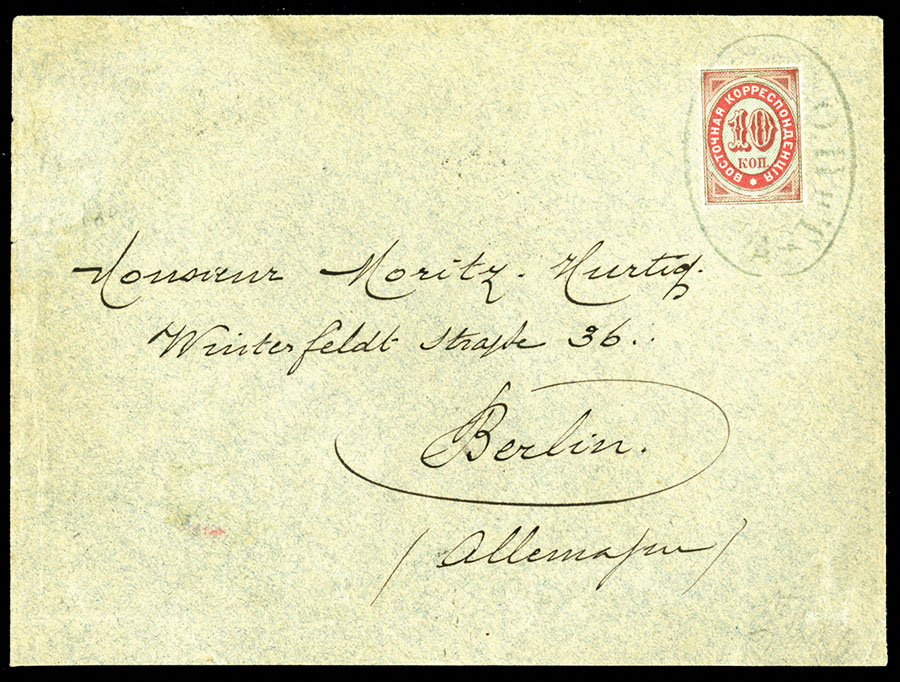 ВОСТОЧНАЯ КОРРЕСПОНДЕНЦІЯ
10
КОП.
Monsieur Moritz. Hurtig.
Winterfeldt Straße 36..
Berlin.
(Allemagne)